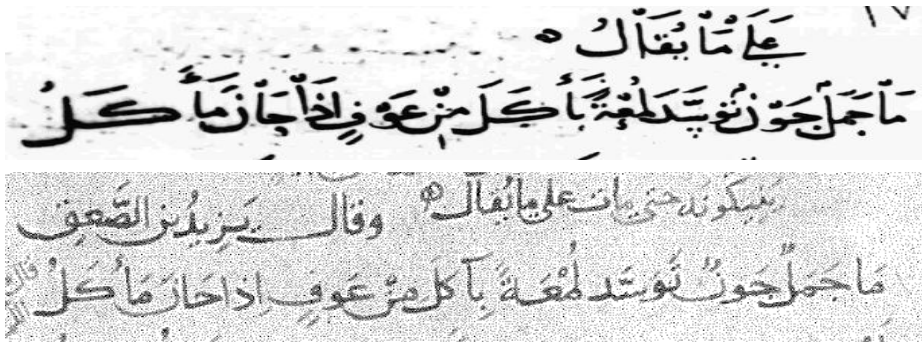 ١٧
عَلَى مَا يُقَالُ ه
مَا جَمَلٌ جَوْنٌ تَوَسَّدَ لُمْعَةً بِأَكَلَ مِنْ عَوْفٍ إِذَا حَانَ مَأْكَلُ
حتى مات على ما يُقال ه وقال يزيدُ بن الصَّعِق
مَا جَمَلٌ جَوْنٌ تَوَسَّد لُمْعَةً بِآكَلَ مِنْ عَوفٍ اِذا حَانَ مَأْكَلُ